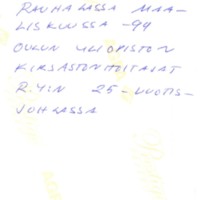 RAUHALASSA MAA-
LISKUUSSA -94
OULUN YLIOPISTON
KIRJASTONHOITAJAT
R.Y:N 25-VUOTIS-
JUHLASSA